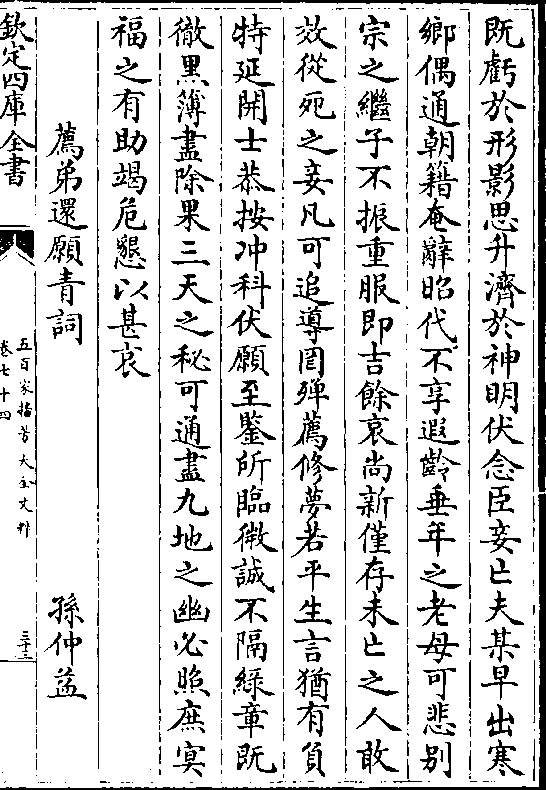 既虧於形影思升濟於神明伏念臣妾亡夫某早出寒
鄉偶通朝籍奄辭昭代不享遐齡垂年之老母可悲別
宗之繼子不振重服即吉餘哀尚新僅存未亡之人敢
效從死之妾凡可追導罔殫薦修夢若平生言猶有負
特延開士恭按冲科伏願至鑒所臨微誠不隔綠章既
徹黑簿盡除果三天之秘可通盡九地之幽必照庶冥
福之有助竭危懇以甚哀
薦弟還願青詞 孫仲益
欽定四庫全書
五百家播芳大全文粹
卷七十四
三十三